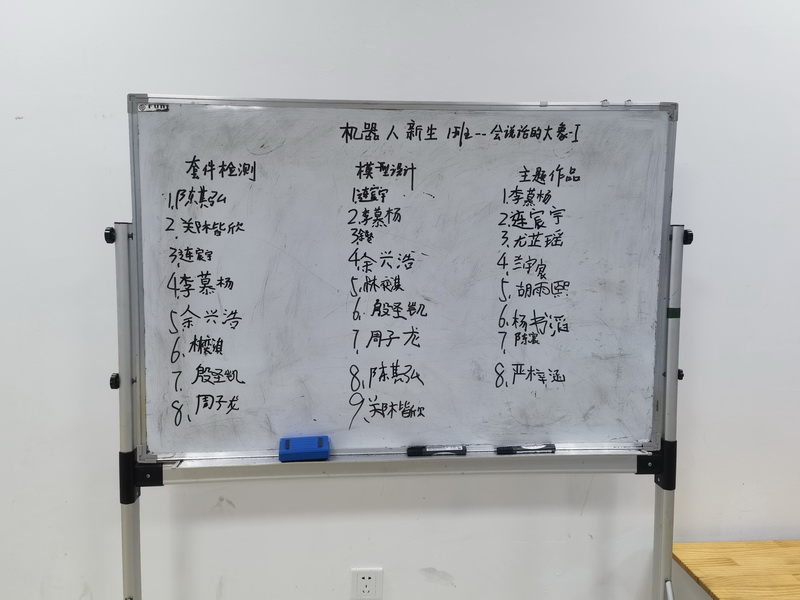 机器人新生1班--会说话的大象-I
套件检测
1.陈其弘
2.郑林皆欣
3.连宸宇
4.李慕杨
5.余兴浩
6.
7.殷圣凯
8.周子龙
模型设计
1.连宸宇
2.李慕杨
3.
4.余兴浩
5.
6.殷圣凯
7.周子龙
8.陈其弘
9.郑林皆欣
主题作品
1.李慕杨
2.连宸宇
3.尤芷瑶
4.
5.胡雨熙
6.杨书滔
7.陈
8.严梓涵